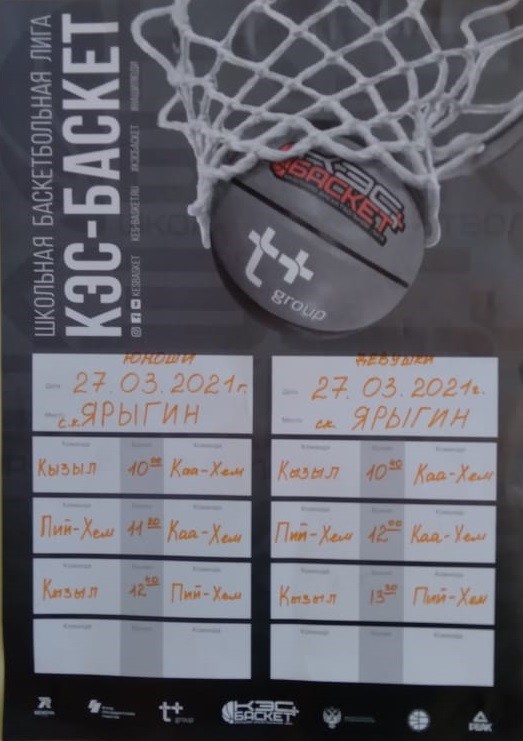 ШКОЛЬНАЯ БАСКЕТБОЛЬНАЯ ЛИГА
КЭС-БАСКЕТ
KESBASKET KES-BASKET.RU #КЭСБАСКЕТ
КЭС
БАСКЕТ
t+
group
ЮНОШИ
Дата 27.03.2021г.
Место с.к. ЯРЫГИН
Команда Команда
Кызыл 10 00 Каа-Хем
Команда Команда
Пий-Хем 11 20 Каа-Хем
Команда Команда
Кызыл 12 40 Пий-Хем
Команда Команда
ДЕВУШКИ
Дата 27.03.2021г.
Место ск. ЯРЫГИН
Команда Команда
Кызыл 10 40 Каа-Хем
Команда Команда
Пий-Хем 12 00 Каа-Хем
Команда Команда
Кызыл 13 20 Пий-Хем
Команда Команда
t+ group
КЭС БАСКЕТ
PEAK